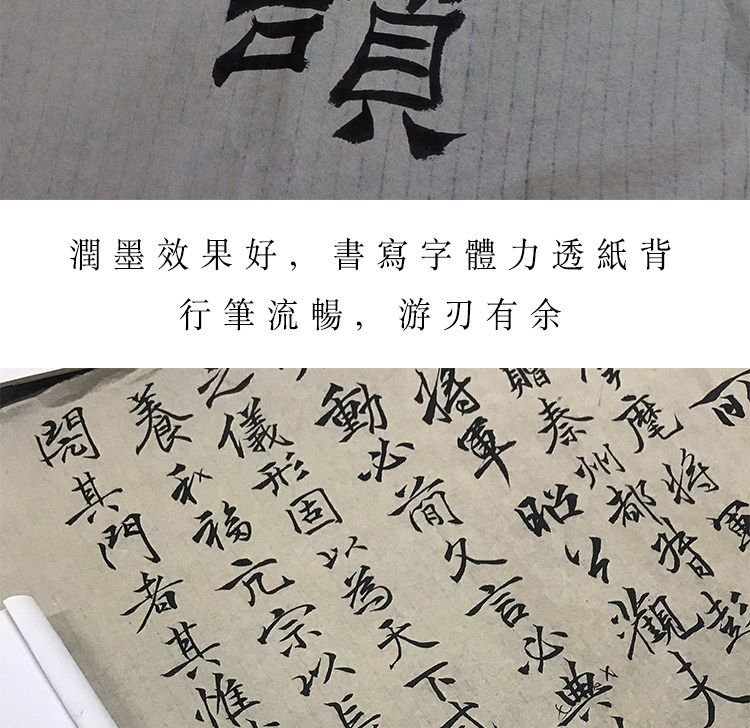 潤墨效果好，書寫字體力透紙背
行筆流暢，游刃有余
麾將軍彭
贈秦州都督
將軍昭公觀夫
動必簡久言必典
之儀形固以為天下
養和福元宗以長
其門者其惟